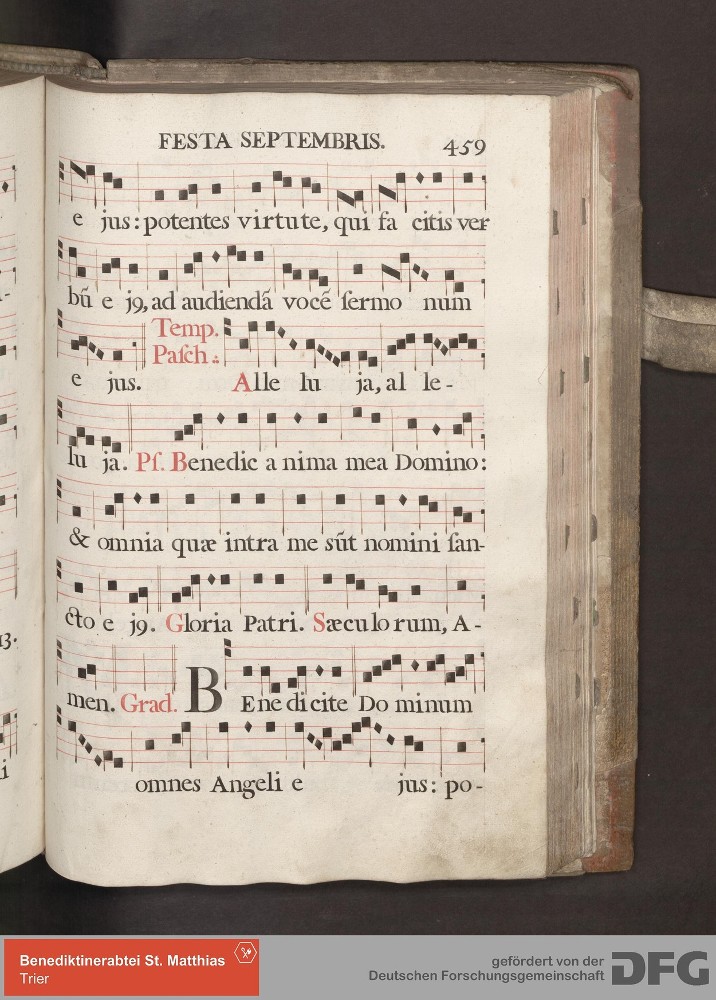 FESTA SEPTEMBRIS. 459
e jus: potentes virtute, qui fa citis ver
bū e j9, ad audiendā vocē sermo num
Temp.
Pasch.:
e jus. Alle lu ja, al le-
lu ja. Ps. Benedic a nima mea Domino:
& omnia quæ intra me sūt nomini san-
cto e j9. Gloria Patri. Sæculorum, A-
men. Grad. BEnedicite Dominum
omnes Angeli e jus: po-
13.
i
Benediktinerabtei St. Matthias
Trier
gefördert von der
Deutschen Forschungsgemeinschaft
DFG